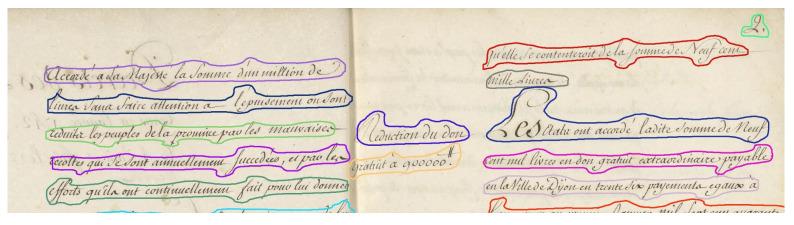 accordé a Sa Majesté la Somme d'un million de
livres sans faire attention a l'épuisement ou sont
reduits les peuples de la province par les mauvaises
recoltes qui se sont annuellement succedées, et par les
efforts qu'ils ont continuellement fait pour lui donner
2.
qu'elle se contenteroit de la somme de Neuf cent
mille Livres
Reduction du don
gratuit a 900000.ᵗᵗ
Les Etats ont accordé ladite somme de Neuf
cent mil livres en don gratuit extraordinaire, payable
en la Ville de Dijon en trente six payements egaux à